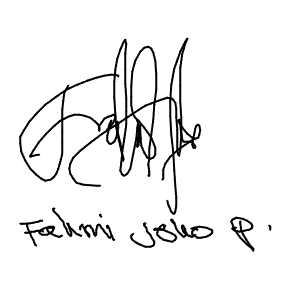 Fahmi Joko P.